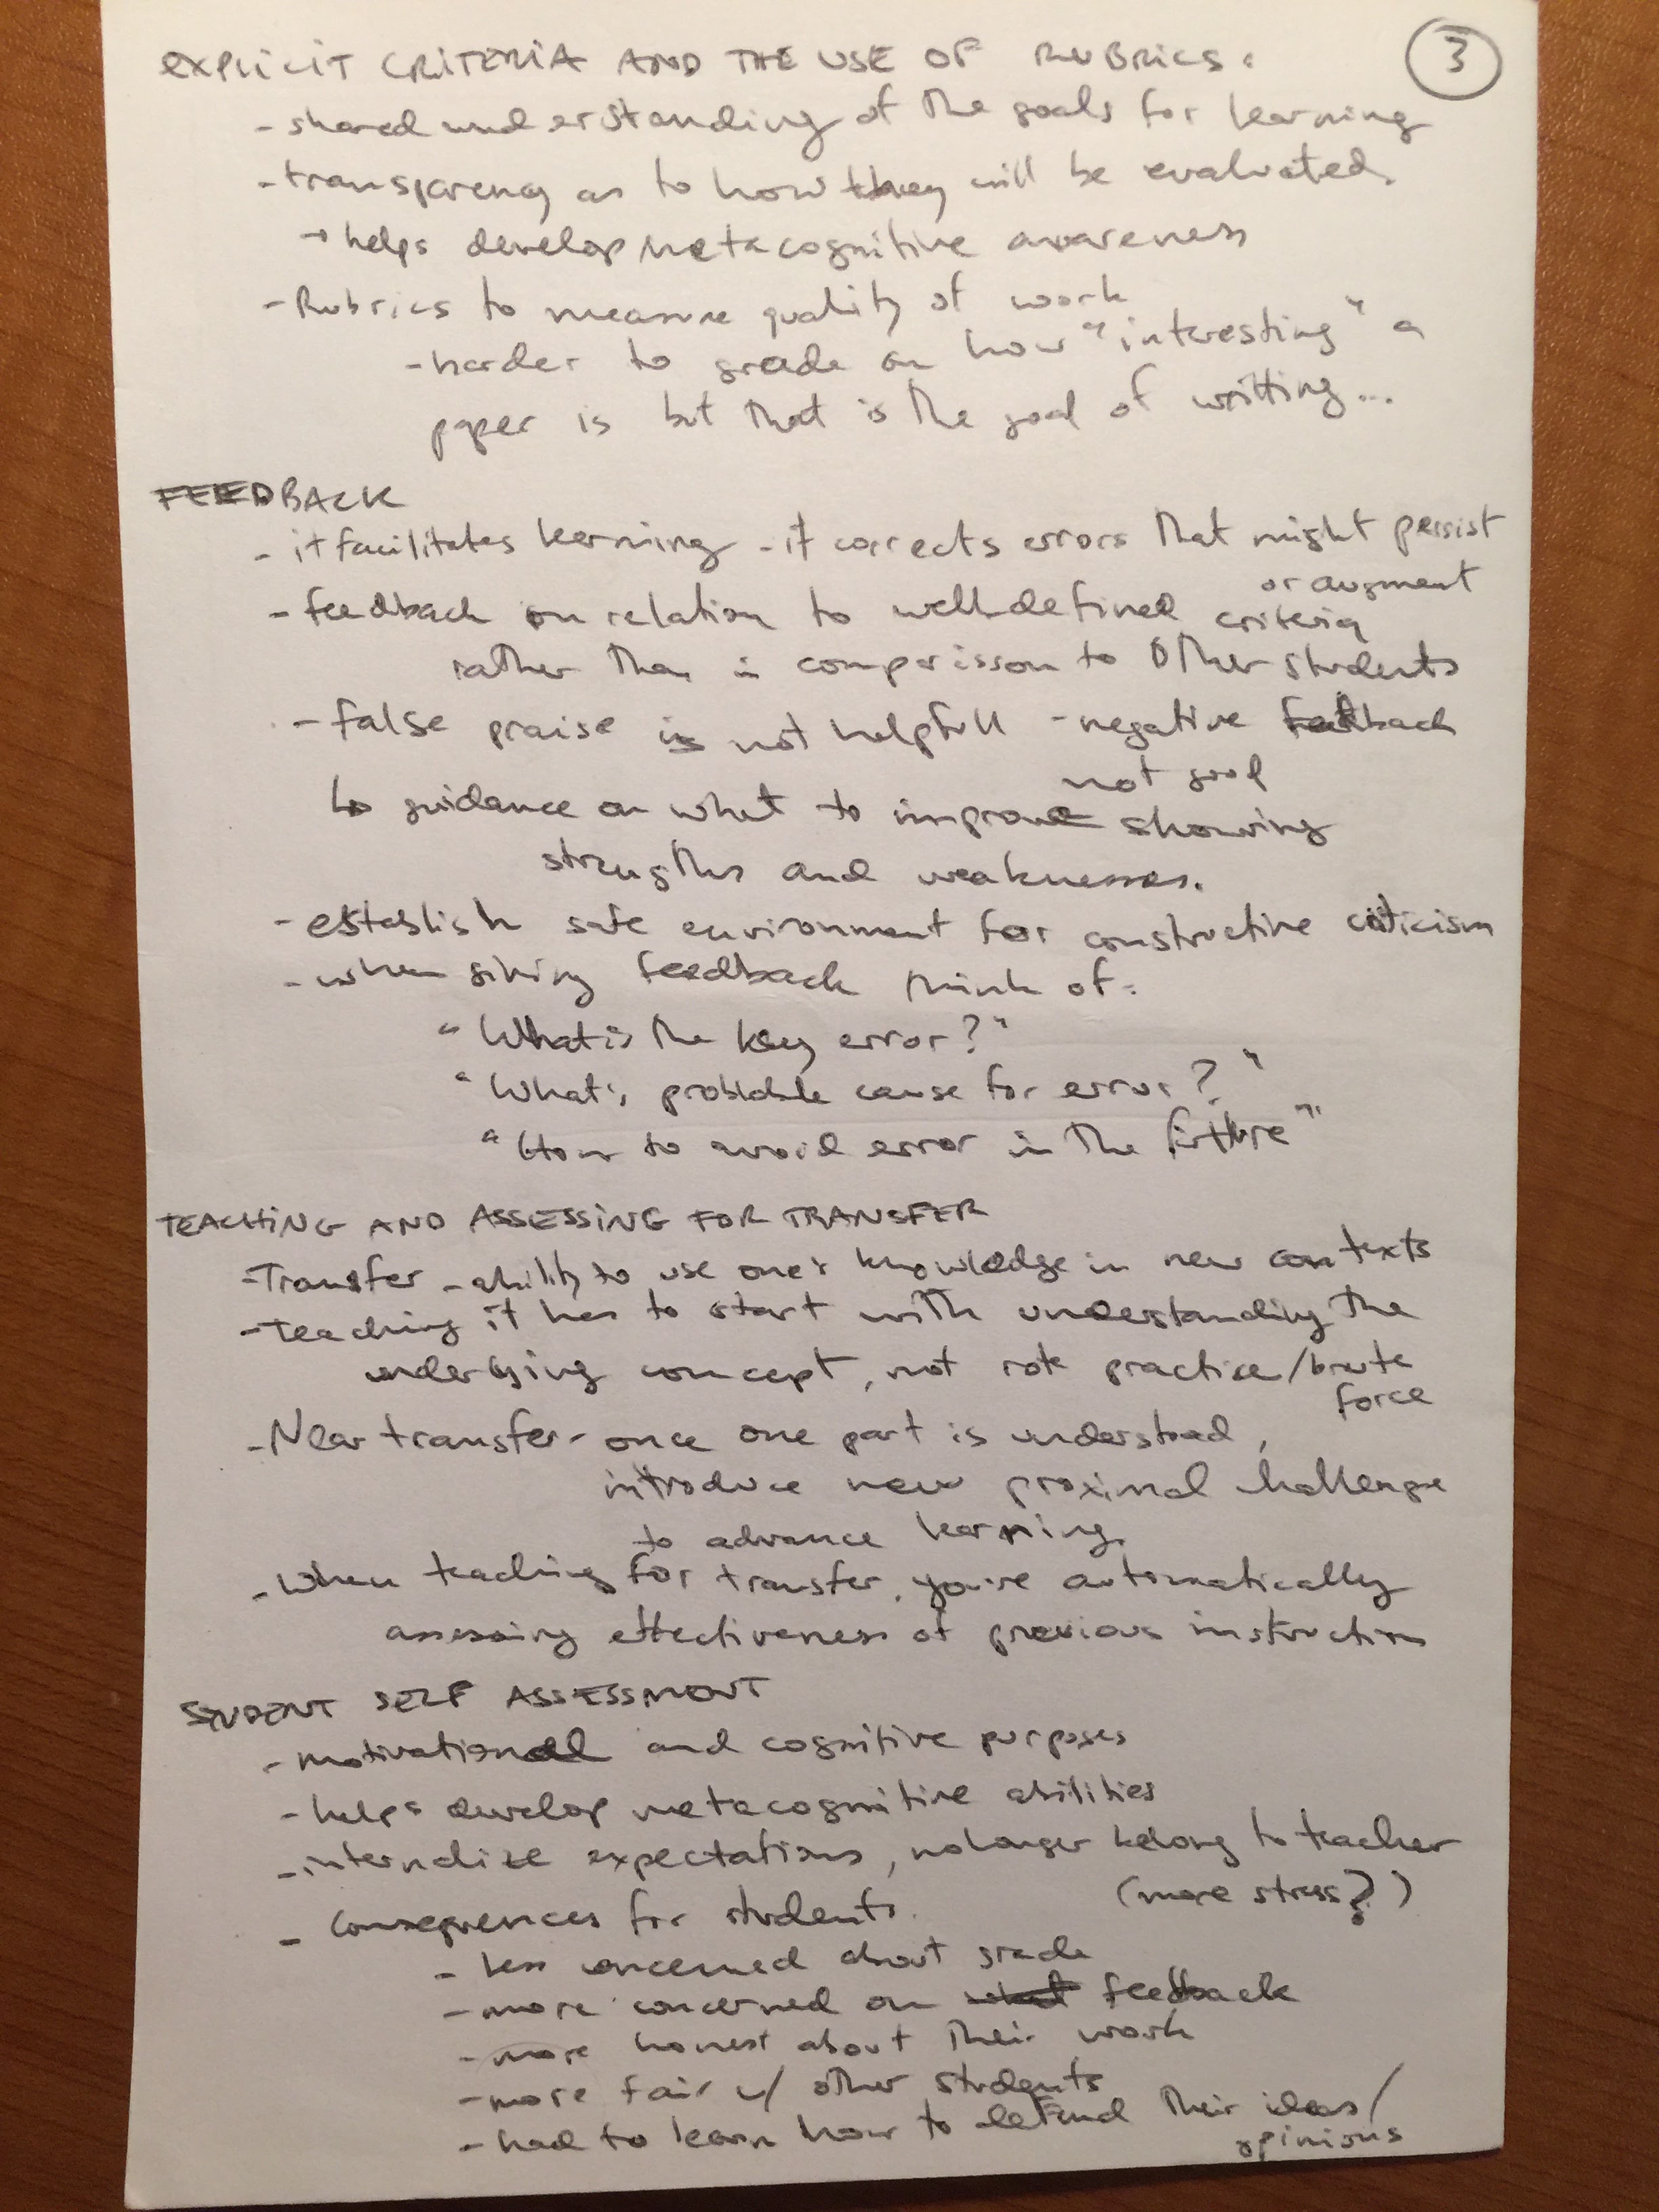 EXPLICIT CRITERIA AND THE USE OF RUBRICS.
3
- shared understanding of the goals for learning
- transparency as to how they will be evaluated.
→ helps develop metacognitive awareness
- Rubrics to measure quality of work
- harder to grade on how "interesting" a
paper is but that is the goal of writting...
FEEDBACK
- it facilitates learning - it corrects errors that might persist
or augment
- feedback in relation to well defined criteria
rather than in comparisson to other students
- false praise is not helpfull - negative feedback
not good
↳ guidance on what to improve showing
strengths and weaknesses.
- establish safe environment for constructive criticism
- when giving feedback think of:
"What is the key error?"
"What's probable cause for error?"
"How to avoid error in the future"
TEACHING AND ASSESSING FOR TRANSFER
- Transfer - ability to use one's knowledge in new contexts
- teaching it has to start with understanding the
underlying concept, not rote practice/brute
force
- Near transfer - once one part is understood,
introduce new proximal challenge
to advance learning.
- When teaching for transfer, you're automatically
assessing effectiveness of previous instruction
STUDENT SELF ASSESSMENT
- motivational and cognitive purposes
- helps develop metacognitive abilities
- internalize expectations, no longer belong to teacher
(more stress?)
- consequences for students.
- less concerned about grade
- more concerned on feedback
- more honest about their work
- more fair w/ other students
- had to learn how to defend their ideas/
opinions